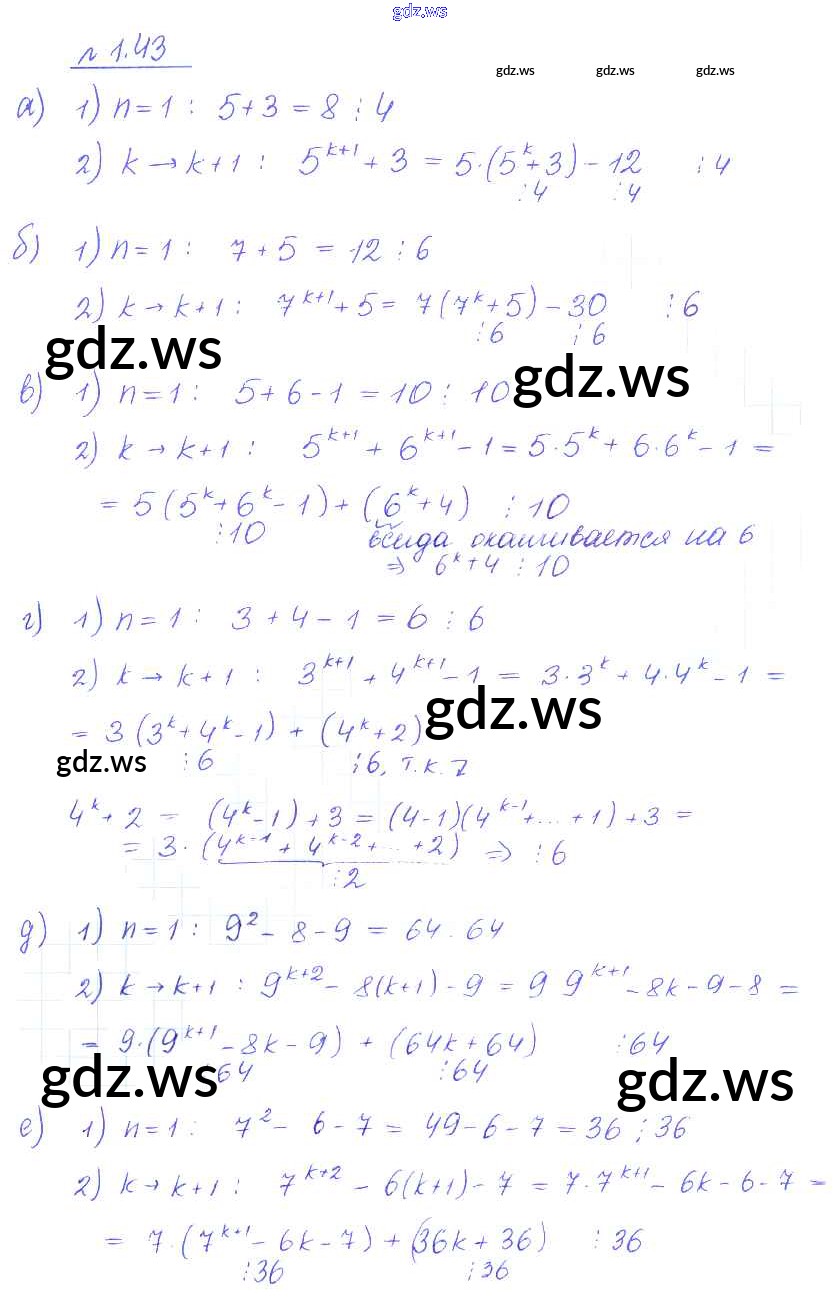 gdz.ws
№ 1.43
gdz.ws gdz.ws gdz.ws
а) 1) n=1 : 5+3 = 8 ⋮ 4
2) k → k+1 : 5^{k+1} + 3 = 5·(5^k+3) − 12 ⋮ 4
⋮4 ⋮4
б) 1) n=1 : 7+5 = 12 ⋮ 6
2) k → k+1 : 7^{k+1} + 5 = 7(7^k+5) − 30 ⋮ 6
⋮6 ⋮6
gdz.ws gdz.ws
в) 1) n=1 : 5+6−1 = 10 ⋮ 10
2) k → k+1 : 5^{k+1} + 6^{k+1} − 1 = 5·5^k + 6·6^k − 1 =
= 5(5^k+6^k−1) + (6^k+4) ⋮ 10
⋮10 всегда оканчивается на 6
⇒ 6^k+4 ⋮ 10
г) 1) n=1 : 3+4−1 = 6 ⋮ 6
2) k → k+1 : 3^{k+1} + 4^{k+1} − 1 = 3·3^k + 4·4^k − 1 =
= 3(3^k+4^k−1) + (4^k+2) gdz.ws
gdz.ws ⋮6 ⋮6, т.к.
4^k + 2 = (4^k−1)+3 = (4−1)(4^{k−1}+...+1)+3 =
= 3·(4^{k−1} + 4^{k−2}+...+2) ⇒ ⋮6
⋮2
д) 1) n=1 : 9^2 − 8 − 9 = 64 . 64
2) k → k+1 : 9^{k+2} − 8(k+1) − 9 = 9 9^{k+1} − 8k − 9 − 8 =
= 9·(9^{k+1} − 8k − 9) + (64k+64) ⋮64
gdz.ws 64 ⋮64 gdz.ws
е) 1) n=1 : 7^2 − 6 − 7 = 49−6−7 = 36 ⋮ 36
2) k → k+1 : 7^{k+2} − 6(k+1) − 7 = 7·7^{k+1} − 6k − 6 − 7 =
= 7·(7^{k+1} − 6k − 7) + (36k+36) ⋮ 36
⋮36 ⋮36